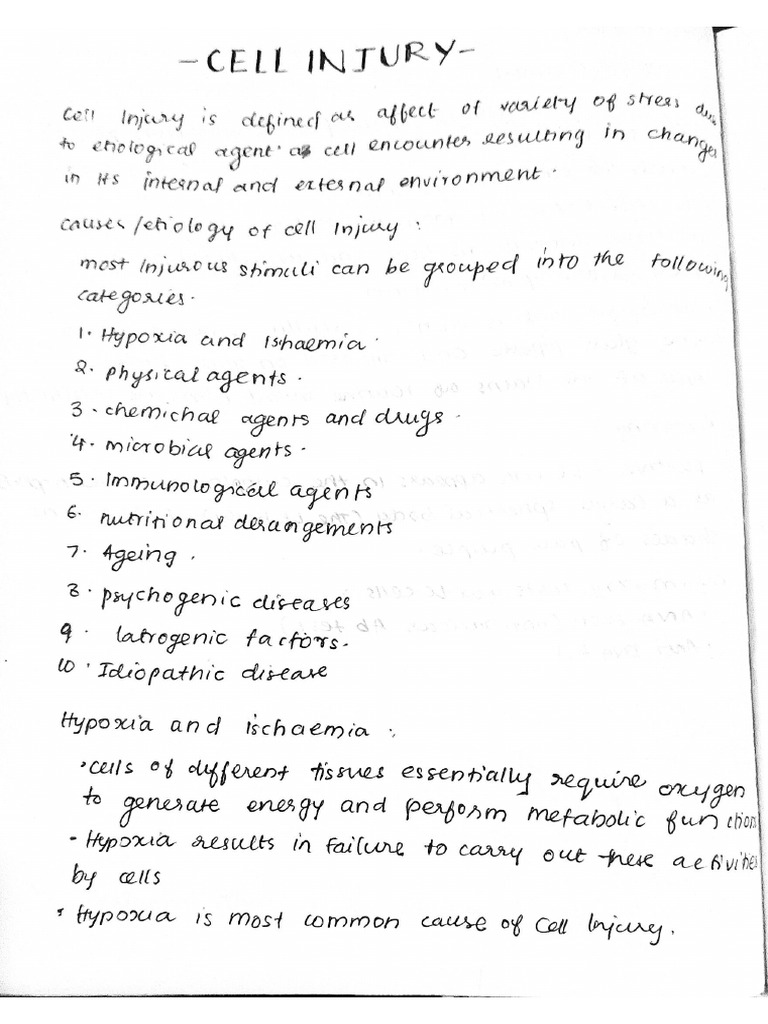 - CELL INJURY -
Cell Injury is defined as affect of variety of stress due
to etiological agent as cell encounter resulting in changes
in its internal and external environment.
causes/etiology of cell Injury :
most Injurous stimuli can be grouped into the following
categories.
1. Hypoxia and Ishaemia.
2. physical agents.
3. chemichal agents and drugs.
4. microbial agents.
5. Immunological agents
6. nutritional derangements
7. Ageing.
8. psychogenic diseases
9. Iatrogenic factors.
10. Idiopathic disease
Hypoxia and ischaemia :
• cells of different tissues essentially require oxygen
to generate energy and perform metabolic function
- Hypoxia results in failure to carry out these activities
by cells
• Hypoxia is most common cause of cell Injury.